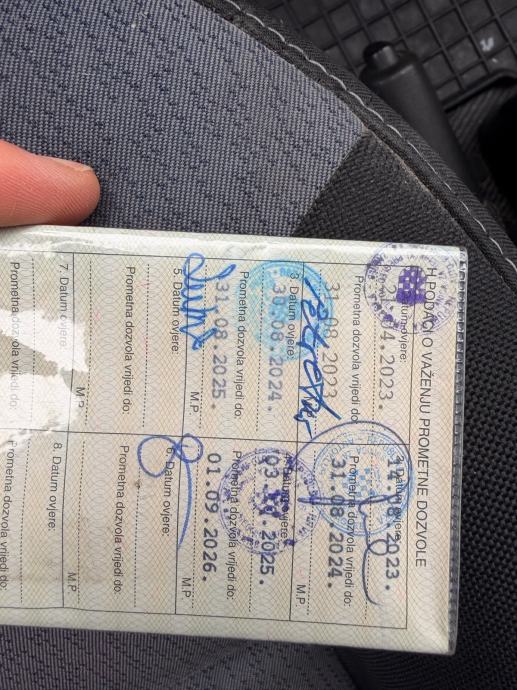 H PODACI O VAŽENJU PROMETNE DOZVOLE
Datum ovjere:
2. Datum ovjere:
4.2023.
14.8.2023.
Prometna dozvola vrijedi do:
Prometna vrijedi do:
31.08.2023
31.08.2024.
M.P.
3. Datum ovjere:
4. Datum ovjere:
30.08.2024.
2025.
Prometna dozvola vrijedi do:
Prometna dozvola vrijedi do:
31.08.2025.
01.09.2026.
M.P.
M.P.
5. Datum ovjere:
6. Datum ovjere:
Prometna dozvola vrijedi do:
Prometna dozvola vrijedi do:
M.P.
M.P.
7. Datum ovjere:
8. Datum ovjere:
Prometna dozvola vrijedi do:
Prometna dozvola vrijedi do: